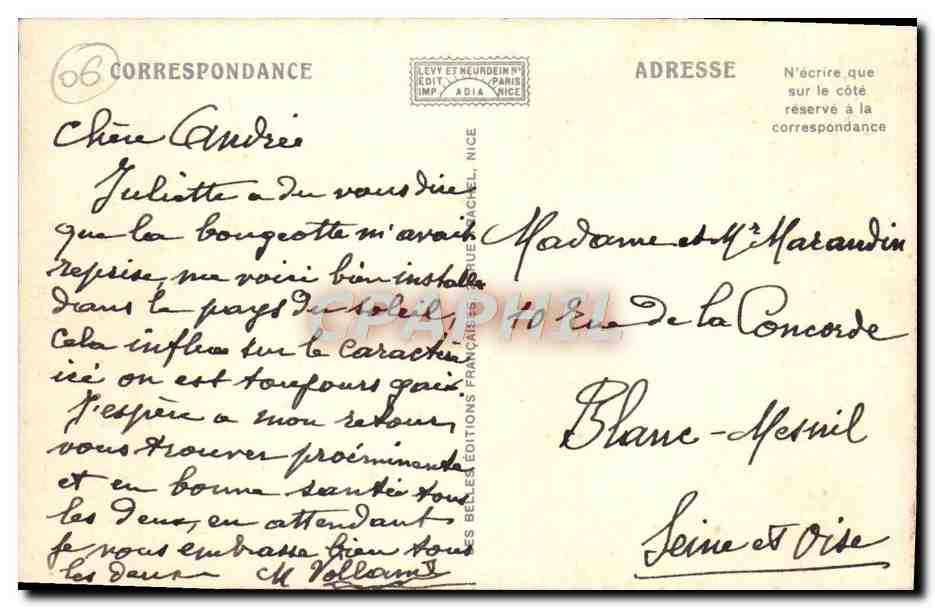 06
CORRESPONDANCE
Chère Andrée
Juliette a du vous dire
que la bougeotte m'avait
reprise, me voici bien installée
dans le pays du soleil,
Cela influe sur le caractère
ici on est toujours gaix.
J'espère a mon retour,
vous trouver proéminente
et en bonne santée tous
les deux, en attendant
Je vous embrasse bien tous
les deux M
LEVY ET NEURDEIN Rs
EDIT PARIS
IMP ADIA NICE
LES BELLES ÉDITIONS FRANÇAISES RUE RACHEL, NICE
CPAPHIL
ADRESSE
N'écrire que
sur le côté
réservé à la
correspondance
Madame et Mr Marandin
10 Rue de la Concorde
Blanc-Mesnil
Seine et Oise